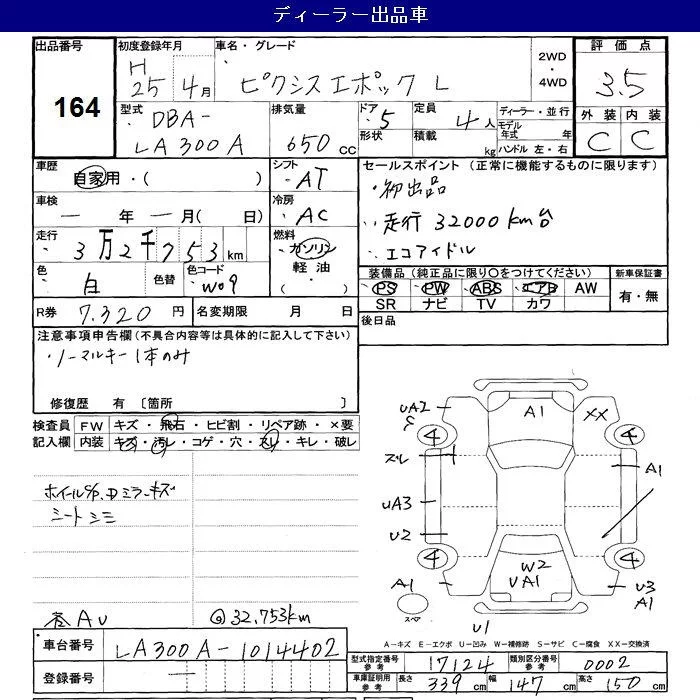 ディーラー出品車
出品番号 164
初度登録年月 H 25年 4月
車名・グレード ピクシスエポック L
2WD・4WD
評価点 3.5
外装 C 内装 C
型式 DBA-LA300A
排気量 650 cc
ドア 5 形状
定員 4人 積載 kg
ディーラー・並行
モデル年式 年
ハンドル 左・右
車歴 自家用・( )
シフト AT
セールスポイント (正常に機能するものに限ります)
・初出品
・走行 32000km台
・エコアイドル
車検 ー年ー月( 日)
冷房 AC
走行 3万2千753km
燃料 ガソリン 軽油・( )
色 白 色替 色コード W09
装備品 (純正品に限り○をつけてください)
PS PW ABS エアB AW
SR ナビ TV カワ
新車保証書 有・無
R券 7,320円
名変期限 月 日
後日品
注意事項申告欄 (不具合内容等は具体的に記入して下さい)
・ノーマルキー1本のみ
修復歴 有 〔箇所 〕
検査員記入欄
FW キズ・飛石・ヒビ割・リペア跡・×要
内装 キズ・汚レ・コゲ・穴・スレ・キレ・破レ
ホイールC/P. Dミラーキズ
シートシミ
32,753km
UA2
A1
XX
4
4
スレ
A1
UA3
U2
4
4
W2
UA1
A1
U3
A1
スペア
U1
A-キズ E-エクボ U-凹み W-補修跡 S-サビ C-腐食 XX-交換済
車台番号 LA300A-1014402
登録番号
型式指定番号 参考 17124
類別区分番号 参考 0002
車庫証明用 参考 長さ 339cm 幅 147cm 高さ 150cm